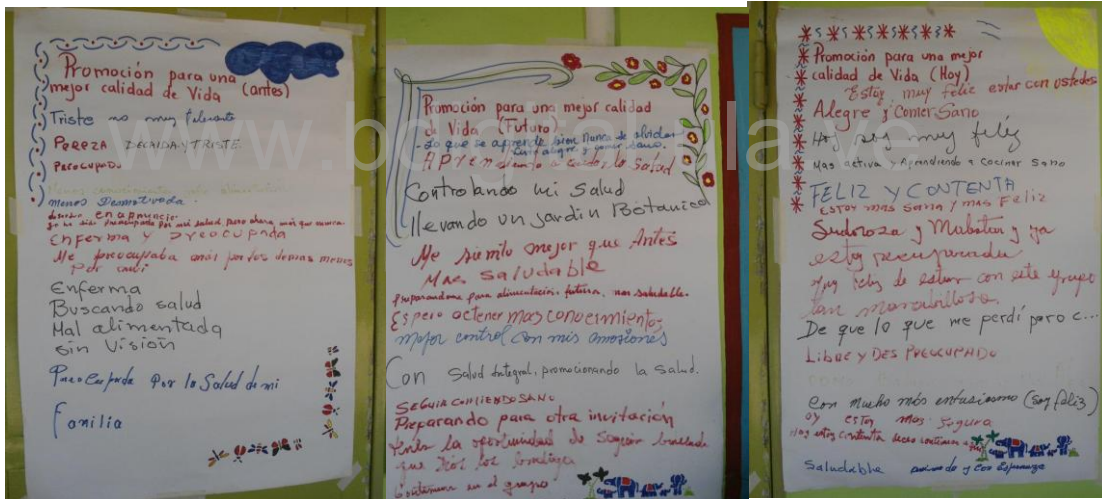 Promoción para una
mejor calidad de Vida (antes)
Triste no muy tolerante
PEREZA DECAIDA Y TRISTE
PREOCUPADO
menos Desmotivada.
Enferma y Preocupada
Me preocupaba más por los demas menos
Por mi
Enferma
Buscando salud
Mal alimentada
sin Visión
Preocupada Por la Salud de mi
Familia
Promoción para una mejor calidad
de Vida (Futuro)
- Lo que se aprende bien Nunca se olvida
Aprendiendo a cuidar la Salud
Controlando mi Salud
llevando un jardin Botanico
Me siento mejor que Antes
Mas Saludable
preparandome para alimentación futura, mas saludable.
Espero octener mas conocimientos
mejor control con mis emosiones
Con Salud Integral, promocionando la Salud.
SEGUIR COMIENDO SANO
Preparando para otra invitación
que Dios los bendiga
en el grupo
Promoción para una mejor
calidad de Vida (Hoy)
Estoy muy feliz estar con ustedes
Alegre y Comer Sano
Hoy soy muy feliz
Mas activa y Aprendiendo a cocinar Sano
FELIZ Y CONTENTA
ESTOY MAS SANA Y MAS FELIZ
y ya
estoy recuperada
Muy feliz de estar con este grupo
tan marabilloso
De que lo que me perdí pero c...
LIBRE Y DESPREOCUPADO
Con mucho más entusiasmo (soy feliz)
oy estoy mas segura
Hoy estoy contenta
Saludable animado y con Esperanza